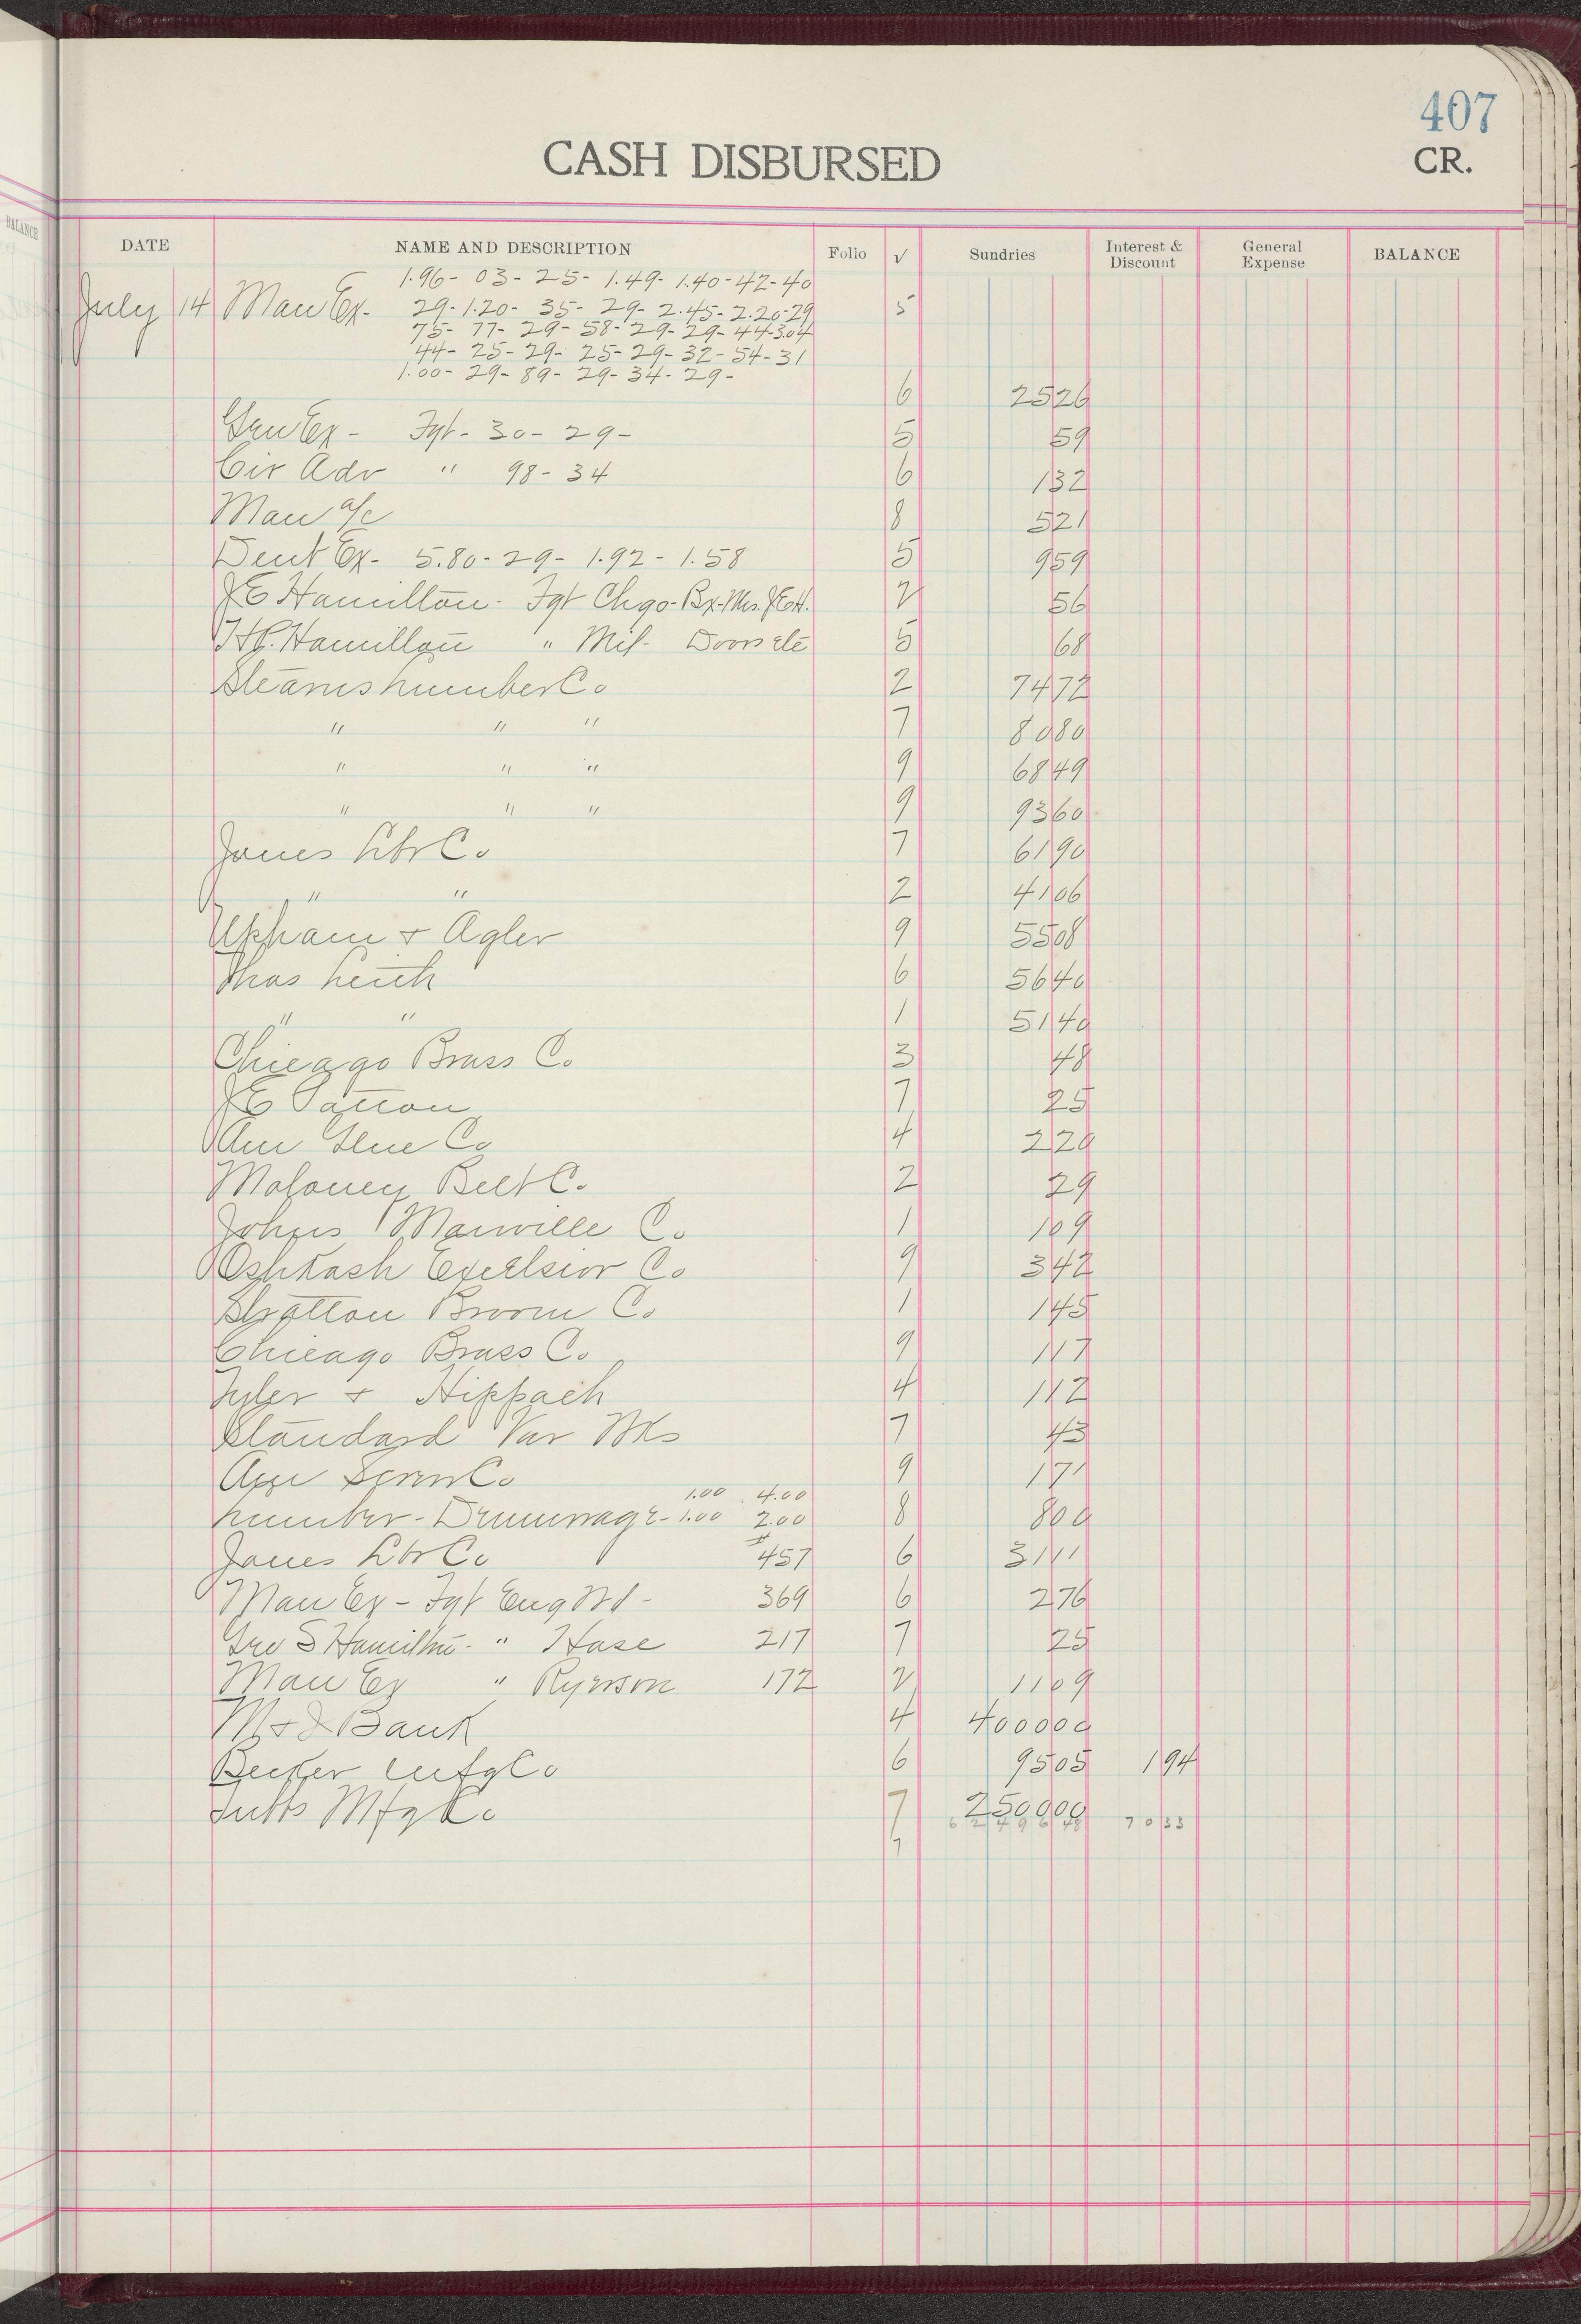 407
CASH DISBURSED
CR.
BALANCE
DATE NAME AND DESCRIPTION Folio √ Sundries Interest & Discount General Expense BALANCE
1.96- 03- 25- 1.49- 1.40-42-40
July 14 Man Ex- 29-1.20- 35- 29- 2.45-2.20-29 5
75- 77- 29- 58- 29- 29- 44-3.04
44- 25- 29- 25- 29- 32- 54- 31
1.00- 29- 89- 29- 34- 29-
6 2526
Gen Ex- Fgt- 30- 29- 5 59
Cir Adv " 98- 34 6 132
Man a/c 8 521
Dent Ex- 5.80- 29- 1.92- 1.58 5 959
JE Hamilton- Fgt Chgo-Bx-Mrs. JEH. 2 56
H.P. Hamilton " Mil- Doors etc 5 68
Stearns Lumber Co 2 7472
" " " 7 8080
" " " 9 6849
" " " 9 9360
Jones Lbr Co 7 6190
" " 2 4106
Upham & Agler 9 5508
Thos Leith 6 5640
" " 1 5140
Chicago Brass Co 3 48
JE Patton 7 25
Am Glue Co 4 220
Maloney Belt C. 2 29
Johns Manville C. 1 109
Oshkosh Excelsior Co 9 342
Stratton Broom C. 1 145
Chicago Brass C. 9 117
Tyler & Hippach 4 112
Standard Var Wks 7 43
Am Screw Co 9 171
1.00 4.00
Lumber- Demurrage- 1.00 2.00 8 800
Jones Lbr Co #457 6 3111
Man Ex- Fgt Eng Wd- 369 6 276
Geo S Hamilton- " Hase 217 7 25
Man Ex " Ryerson 172 2 1109
M & I Bank 4 400000
Becker Mfg Co 6 9505 194
Tubbs Mfg Co 7 250000
6249648 7033
7